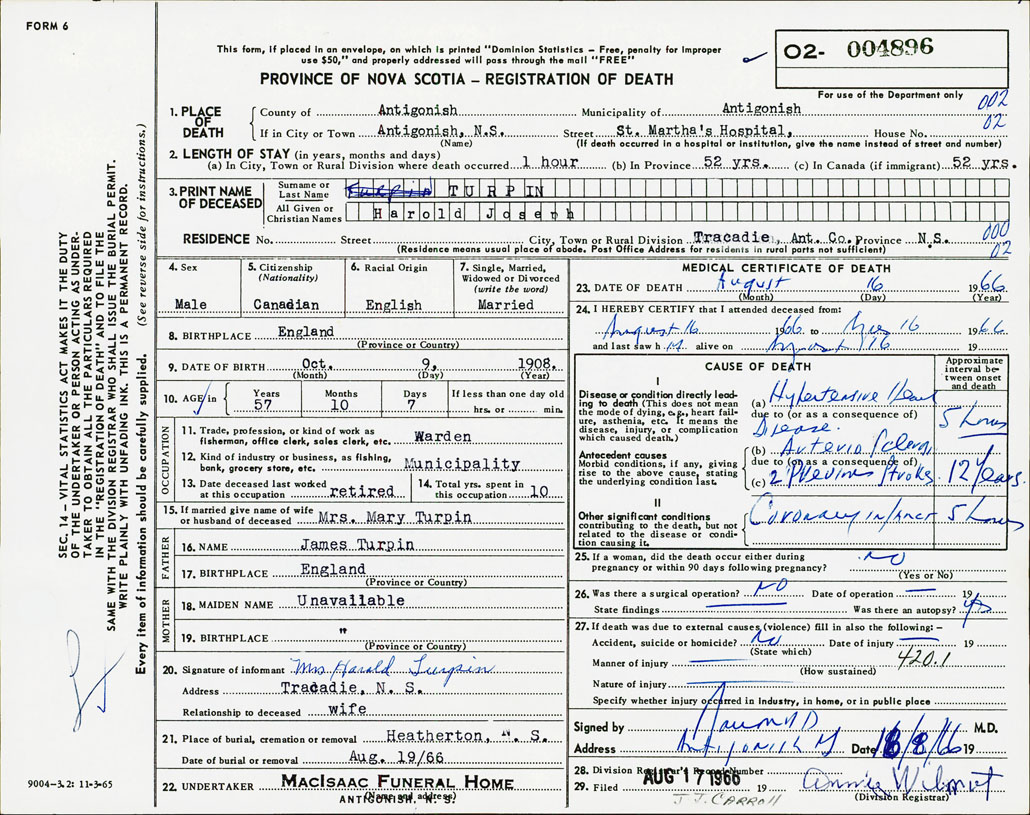 FORM 6
This form, if placed in an envelope, on which is printed "Dominion Statistics – Free, penalty for improper
use $50," and properly addressed will pass through the mail "FREE"
PROVINCE OF NOVA SCOTIA – REGISTRATION OF DEATH
O2- 004896
For use of the Department only
002
02
1. PLACE OF DEATH
County of Antigonish Municipality of Antigonish
If in City or Town Antigonish, N.S. Street St. Martha's Hospital, House No.
(Name) (If death occurred in a hospital or institution, give the name instead of street and number)
2. LENGTH OF STAY (in years, months and days)
(a) In City, Town or Rural Division where death occurred 1 hour (b) In Province 52 yrs. (c) In Canada (if immigrant) 52 yrs.
3. PRINT NAME OF DECEASED
Surname or Last Name Turpin TURPIN
All Given or Christian Names Harold Joseph
RESIDENCE No. Street City, Town or Rural Division Tracadie, Ant. Co. Province N.S.
(Residence means usual place of abode. Post Office Address for residents in rural parts not sufficient)
000
02
4. Sex
Male
5. Citizenship (Nationality)
Canadian
6. Racial Origin
English
7. Single, Married, Widowed or Divorced (write the word)
Married
8. BIRTHPLACE England
(Province or Country)
9. DATE OF BIRTH Oct. 9, 1908.
(Month) (Day) (Year)
10. AGE in Years 57 Months 10 Days 7 If less than one day old hrs. or min.
OCCUPATION
11. Trade, profession, or kind of work as fisherman, office clerk, sales clerk, etc. Warden
12. Kind of industry or business, as fishing, bank, grocery store, etc. Municipality
13. Date deceased last worked at this occupation retired
14. Total yrs. spent in this occupation 10
15. If married give name of wife or husband of deceased Mrs. Mary Turpin
FATHER
16. NAME James Turpin
17. BIRTHPLACE England
(Province or Country)
MOTHER
18. MAIDEN NAME Unavailable
19. BIRTHPLACE "
(Province or Country)
20. Signature of informant Mrs Harold Turpin
Address Tracadie, N. S.
Relationship to deceased wife
21. Place of burial, cremation or removal Heatherton, N. S.
Date of burial or removal Aug. 19/66
22. UNDERTAKER MacIsaac Funeral Home
(Name and address)
ANTIGONISH, N. S.
MEDICAL CERTIFICATE OF DEATH
23. DATE OF DEATH August 16 1966
(Month) (Day) (Year)
24. I HEREBY CERTIFY that I attended deceased from:
August 16 1966 to 16 1966
and last saw h alive on August 16 19
CAUSE OF DEATH
Approximate interval between onset and death
I
Disease or condition directly leading to death (This does not mean the mode of dying, e.g., heart failure, asthenia, etc. It means the disease, injury, or complication which caused death.)
(a) Hypertensive Heart
due to (or as a consequence of)
Disease. 5 hours
Antecedent causes
Morbid conditions, if any, giving rise to the above cause, stating the underlying condition last.
(b) Arterio
due to (or as a consequence of)
(c) 2 Previous Strokes. 12 Years.
II
Other significant conditions contributing to the death, but not related to the disease or condition causing it.
Coronary infarct 5 hours
25. If a woman, did the death occur either during pregnancy or within 90 days following pregnancy? NO
(Yes or No)
26. Was there a surgical operation? NO Date of operation 19
State findings Was there an autopsy? yes
27. If death was due to external causes (violence) fill in also the following: –
Accident, suicide or homicide? No Date of injury 19
(State which)
420.1
Manner of injury
(How sustained)
Nature of injury
Specify whether injury occurred in industry, in home, or in public place
Signed by M.D.
Address Antigonish Date 16/8/66 19
28. Division Registrar's Record Number
29. Filed AUG 17 1966 19 Annie Wilmot
(Division Registrar)
J J. CARROLL
SEC. 14 – VITAL STATISTICS ACT MAKES IT THE DUTY
OF THE UNDERTAKER OR PERSON ACTING AS UNDER-
TAKER TO OBTAIN ALL THE PARTICULARS REQUIRED
IN THE "REGISTRATION OF DEATH" AND TO FILE THE
SAME WITH THE DIVISION REGISTRAR WHO SHALL ISSUE THE BURIAL PERMIT.
WRITE PLAINLY WITH UNFADING INK. THIS IS A PERMANENT RECORD.
Every item of information should be carefully supplied. (See reverse side for instructions.)
9004-3.2: 11-3-65